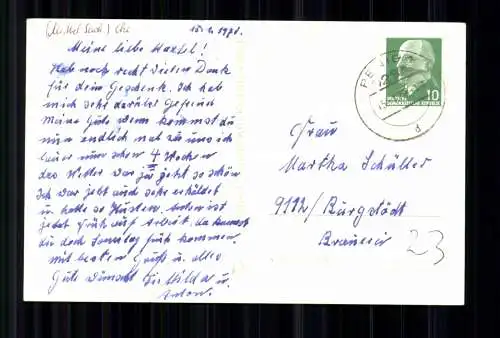 Meine liebe Martel!
Hab noch recht vielen Dank
für dein Geschenk. Ich hab
mich sehr darüber gefreut
Meine Gute wenn kommst du
nun endlich mal zu uns ich
nun schon 4 Wochen
das Wetter war ja jetzt so schön
Ich war jetzt auch sehr erkältet
u. hatte so Husten. Anton ist
jetzt früh auf Arbeit. da kannst
du doch Sonntag früh kommen.
mit besten Grüß u. alles
Gute Hilda u.
Anton.
PENIG
DEUTSCHE
DEMOKRATISCHE REPUBLIK
10
d
Frau
Martha Schüller
9112/Burgstädt
Brauerei
23